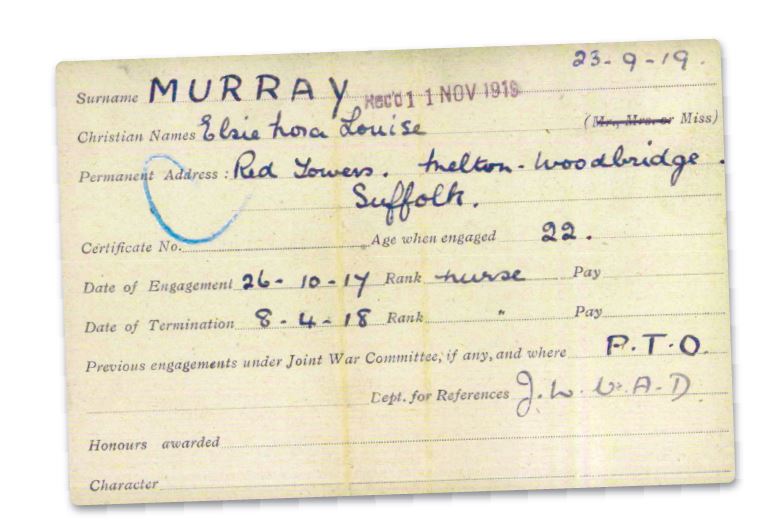 23-9-19.
Surname MURRAY Rec'd 11 NOV 1919
Christian Names Elsie Nora Louise (Mr., Mrs. or Miss)
Permanent Address: Red Towers. Melton-Woodbridge.
Suffolk.
Certificate No. Age when engaged 22.
Date of Engagement 26-10-17 Rank nurse Pay
Date of Termination 8-4-18 Rank " Pay
Previous engagements under Joint War Committee, if any, and where P.T.O.
Dept. for References J.W.V.A.D.
Honours awarded
Character